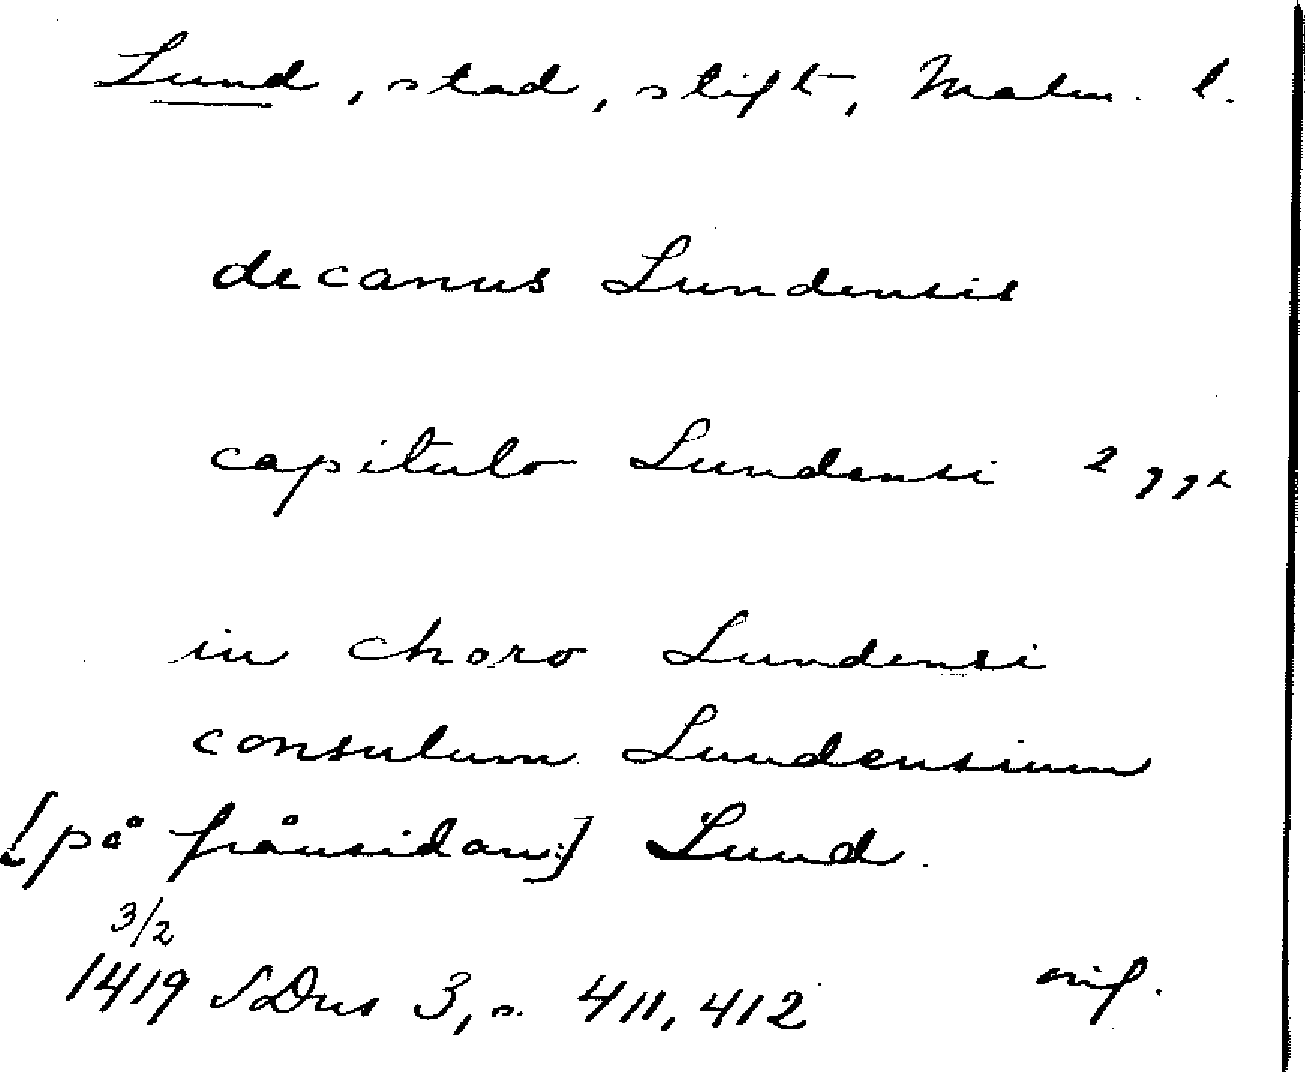 Lund, stad, stift, Malm. l.
decanus Lundensis
capitulo Lundensi 2 ggr
in choro Lundensi
consulum Lundensium
[på frånsidan:] Lund.
3/2
1419 SDns 3, s. 411, 412 orig.